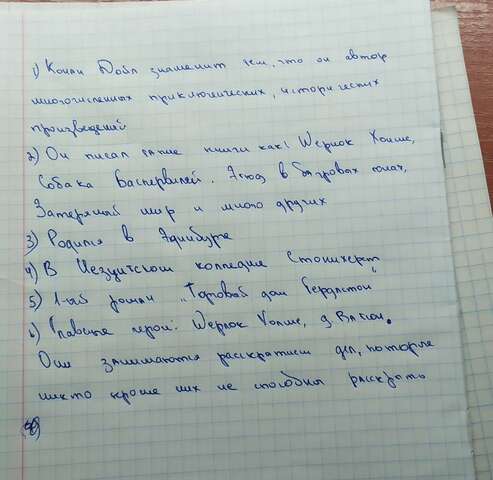 1) Конан Дойл знаменит тем, что он автор
многочисленных приключенческих, исторических
произведений
2) Он писал такие книги как: Шерлок Холмс,
Собака Баскервилей. Этюд в багровых тонах,
Затерянный мир и много других
3) Родился в Эдинбурге
4) В Иезуитском колледже Стонихерст
5) 1-ый роман „Торговый дом Гердлстон"
6) Главные герои: Шерлок Холмс, д Ватсон.
Они занимаются раскрытием дел, которые
никто кроме них не способны раскрыть